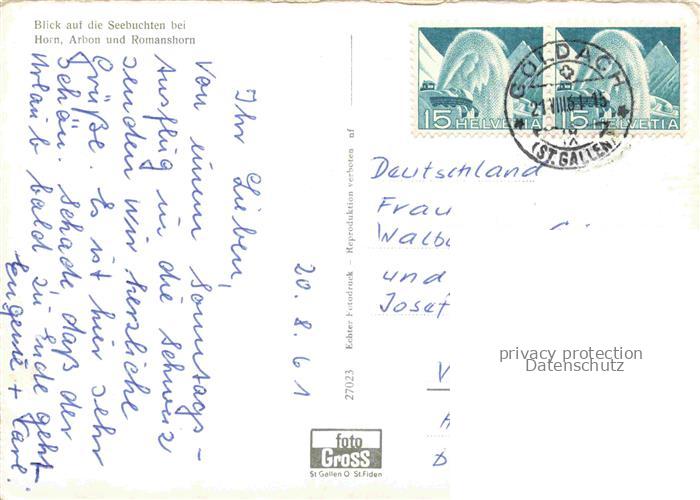 Blick auf die Seebuchten bei
Horn, Arbon und Romanshorn
Ihr Lieben,
Von einem Sonntags-
Ausflug in die Schweiz
senden wir herzliche
Grüße. Es ist hier sehr
schön. Schade, daß der
Urlaub bald zu Ende geht
Eugenie + Karl.
20.8.61
27023 Echter Fotodruck - Reproduktion verboten af
foto
Gross
St Gallen O St.Fiden
15 HELVETIA
15 HELVETIA
GOLDACH
21 VIII 61-15
(ST. GALLEN)
Deutschland
Frau
Walb
und
Josef
V
D
privacy protection
Datenschutz